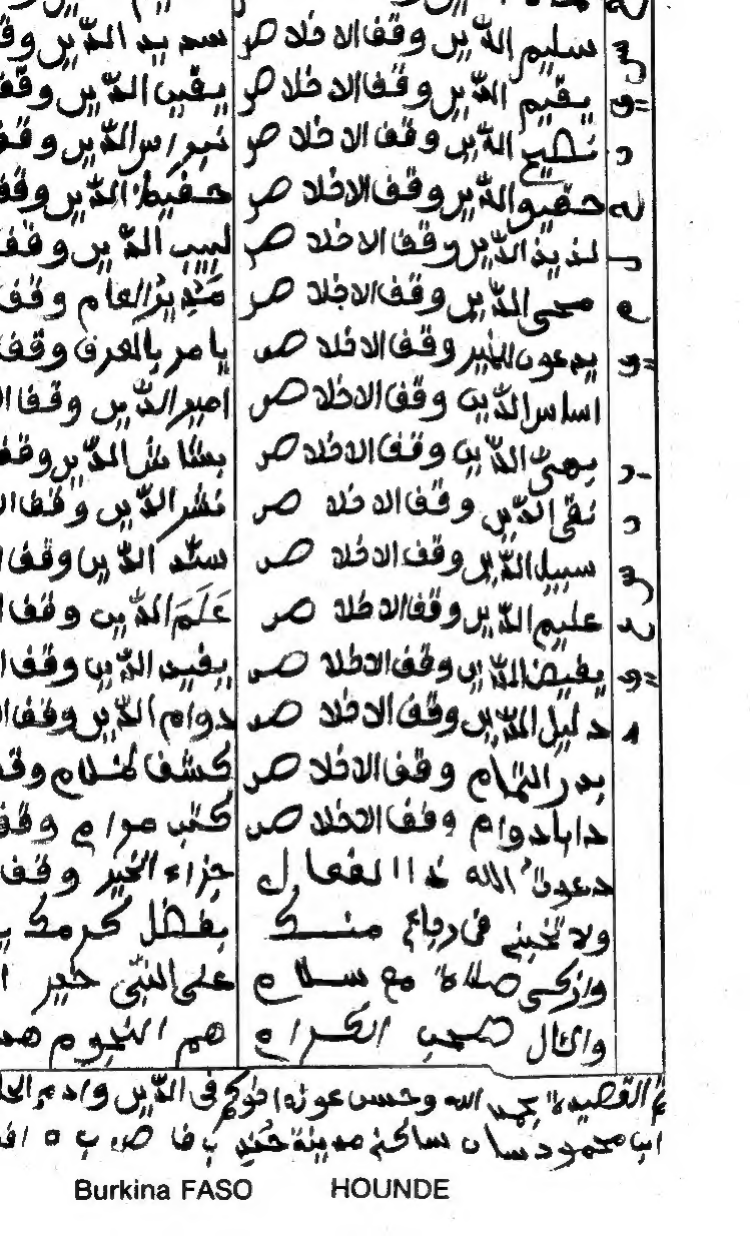 سليم الدّين وقف الاخلاص سديد الدّين وقف
يقيم الدّين وقف الاخلاص يقين الدّين وقف
نصيح الدّين وقف الاخلاص نبراس الدّين وقف
الدّين وقف الاخلاص حفيظ الدّين وقف
لذيذ الدّين وقف الاخلاص لبيب الدّين وقف
م محى الدّين وقف الاخلاص العام وقف
ي يدعون للخير وقف الاخلاص يامر بالعرف وقف
اساس الدّين وقف الاخلاص امير الدّين وقف ا
بهىّ الدّين وقف الاخلاص بشاش الدّين وقف
ن نقى الدّين وقف الاخلاص نشر الدّين وقف ا
س سبيل الدّين وقف الاخلاص سند الدّين وقف ا
ع عليم الدّين وقف الاخلاص عَلَمَ الدّين وقف ا
ي يفيض الدّين وقف الاخلاص يفيد الدّين وقف ا
د دليل الدّين وقف الاخلاص دوام الدّين وقف ا
بدر التمام وقف الاخلاص كشف لظلام وقف
دابا دوام وقف الاخلاص كتب مرام وقف
دعوت الله ذا الفعال جزاء الخير وقف
ولا تخيبني في رجائ منك بفضل كرمك
وازكى صلاة مع سلام على النبّى خير ا
والئال صحب الكرام هم النجوم
تم القصيدة بحمد الله وحسن عونه في الدّين
ابا محمود سان ساكن مدينة
Burkina FASO HOUNDE